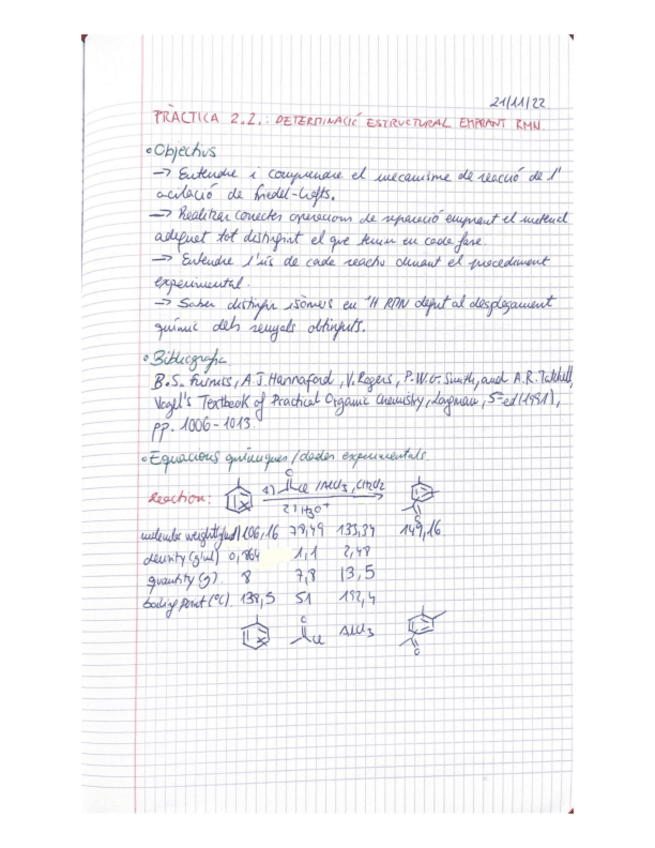 21/11/22
PRÀCTICA 2.2.: DETERMINACIÓ ESTRUCTURAL EMPRANT RMN.
• Objectius
→ Entendre i comprendre el mecanisme de reacció de l'
acilació de Friedel-Crafts.
→ Realitzar correctes operacions de separació emprant el material
adequat tot distingint el que tenim en cada fase.
→ Entendre l'ús de cada reactiu durant el procediment
experimental.
→ Saber distingir isòmers en ¹H RMN degut al desplaçament
químic dels senyals obtinguts.
• Bibliografia
B.S. Furniss, A.J. Hannaford, V. Rogers, P.W.G. Smith, and A.R. Tatchell,
Vogel's Textbook of Practical Organic Chemistry, Longman, 5ª ed (1991),
pp. 1006-1013.
• Equacions químiques / dades experimentals
Reaction: 1) O Cl / AlCl3, CH2Cl2
2) H3O+
O
molecular weight (g/mol) 106,16 78,49 133,34 149,16
density (g/ml) 0,864 1,1 2,48
quantity (g) 8 7,8 13,5
boiling point (ºC) 138,5 51 192,4
O Cl AlCl3 O